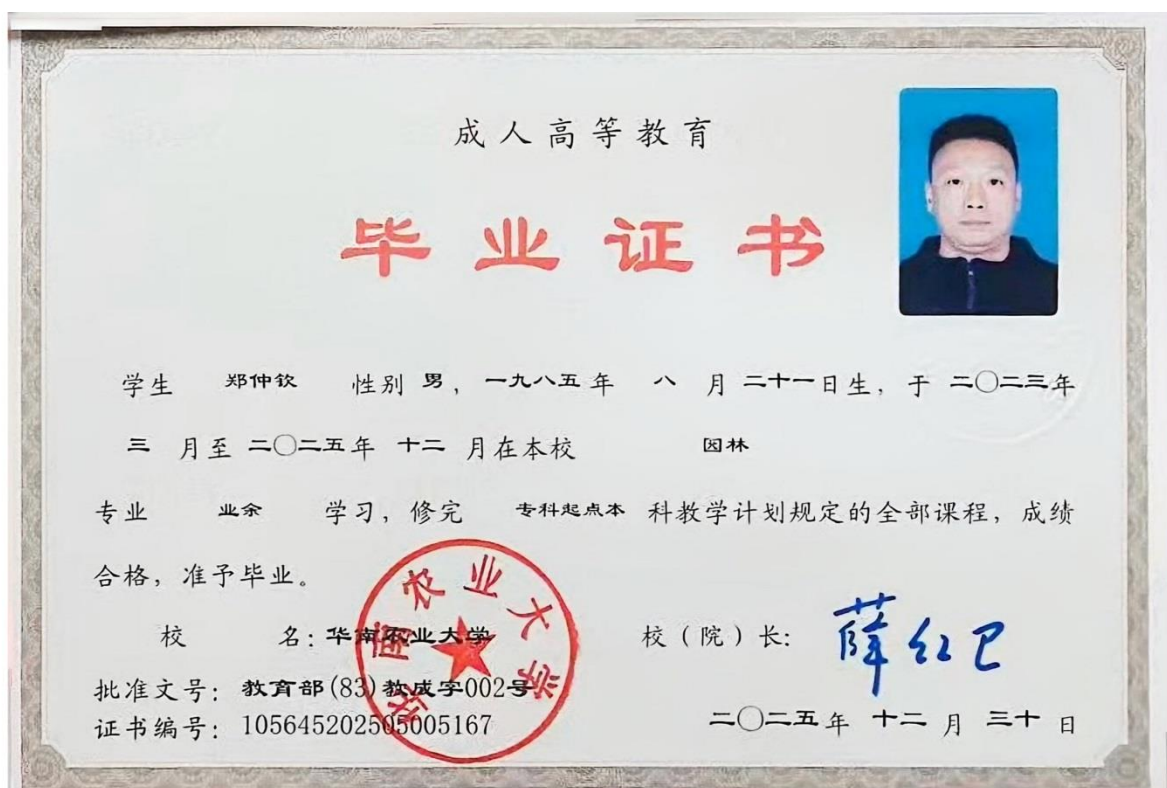 成人高等教育
毕业证书
学生 郑仲钦 性别 男，一九八五年 八 月 二十一日生，于 二〇二三年
三 月至 二〇二五年 十二 月在本校 园林
专业 业余 学习，修完 专科起点本 科教学计划规定的全部课程，成绩
合格，准予毕业。
华南农业大学
校 名：华南农业大学 校（院）长：薛红卫
批准文号：教育部(83)教成字002号
证书编号：105645202505005167 二〇二五年 十二 月 三十 日